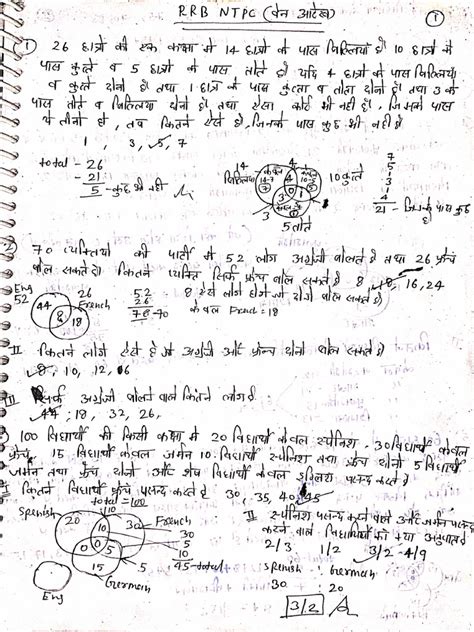 RRB NTPC (वेन आरेख)
1
1 26 छात्रो की एक कक्षा मे 14 छात्रो के पास बिल्लियां है 10 छात्रो के
पास कुत्ते व 5 छात्रों के पास तोते है यदि 4 छात्रो के पास बिल्लियां
व कुत्ते दोनो है तथा 1 छात्र के पास कुत्ता व तोता दोनो है तथा 3 के
पास तोते व बिल्लियां दोनो है, तथा ऐसा कोई भी नही है, जिसके पास
ये तीनो हो, तब कितने ऐसे है, जिनके पास कुछ भी नही है
1, 3, 5, 7
total - 26
- 21
5 - कुछ भी नही
14
बिल्लियां
4
10 कुत्ते
3
1
5 तोते
7
5
3
1
4
21 - जिनके पास कुछ है
2 70 व्यक्तियो की पार्टी मे 52 लोग अंग्रेजी बोलते है तथा 26 फ्रेंच
बोल सकते है। कितने व्यक्ति सिर्फ फ्रेंच बोल सकते है 8, 18, 16, 24
Eng
52
26
French
44
8
18
52
26
78-70
8 ऐसे लोग होगे जो दोनो बोल सकते है
केवल French = 18
II कितने लोग ऐसे है जो अंग्रेजी और फ्रेन्च दोनो बोल सकते है
8, 10, 12, 16
II सिर्फ अंग्रेजी बोलने वाले कितने लोग है
44, 18, 32, 26,
100 विद्यार्थी की किसी कक्षा मे 20 विद्यार्थी केवल स्पेनिश, 30 विद्यार्थी केवल
फ्रेंच, 15 विद्यार्थी केवल जर्मन 10 विद्यार्थी स्पेनिश तथा फ्रेंच दोनो 5 विद्यार्थी
जर्मन तथा फ्रेंच दोनो और शेष विद्यार्थी केवल इंग्लिश पसन्द करते है
कितने विद्यार्थी फ्रेंच पसन्द करते है 30, 35, 40, 45
total = 100
Spenish
20
10
30
French
0
0
5
15
German
Eng
30
10
5
45 - total
II स्पेनिश पसन्द करने वाले और जर्मन पसन्द
करने वाले विद्यार्थियो का क्या अनुपात है
2/3 1/2 3/2 4/9
Spenish : German
30 20
3/2